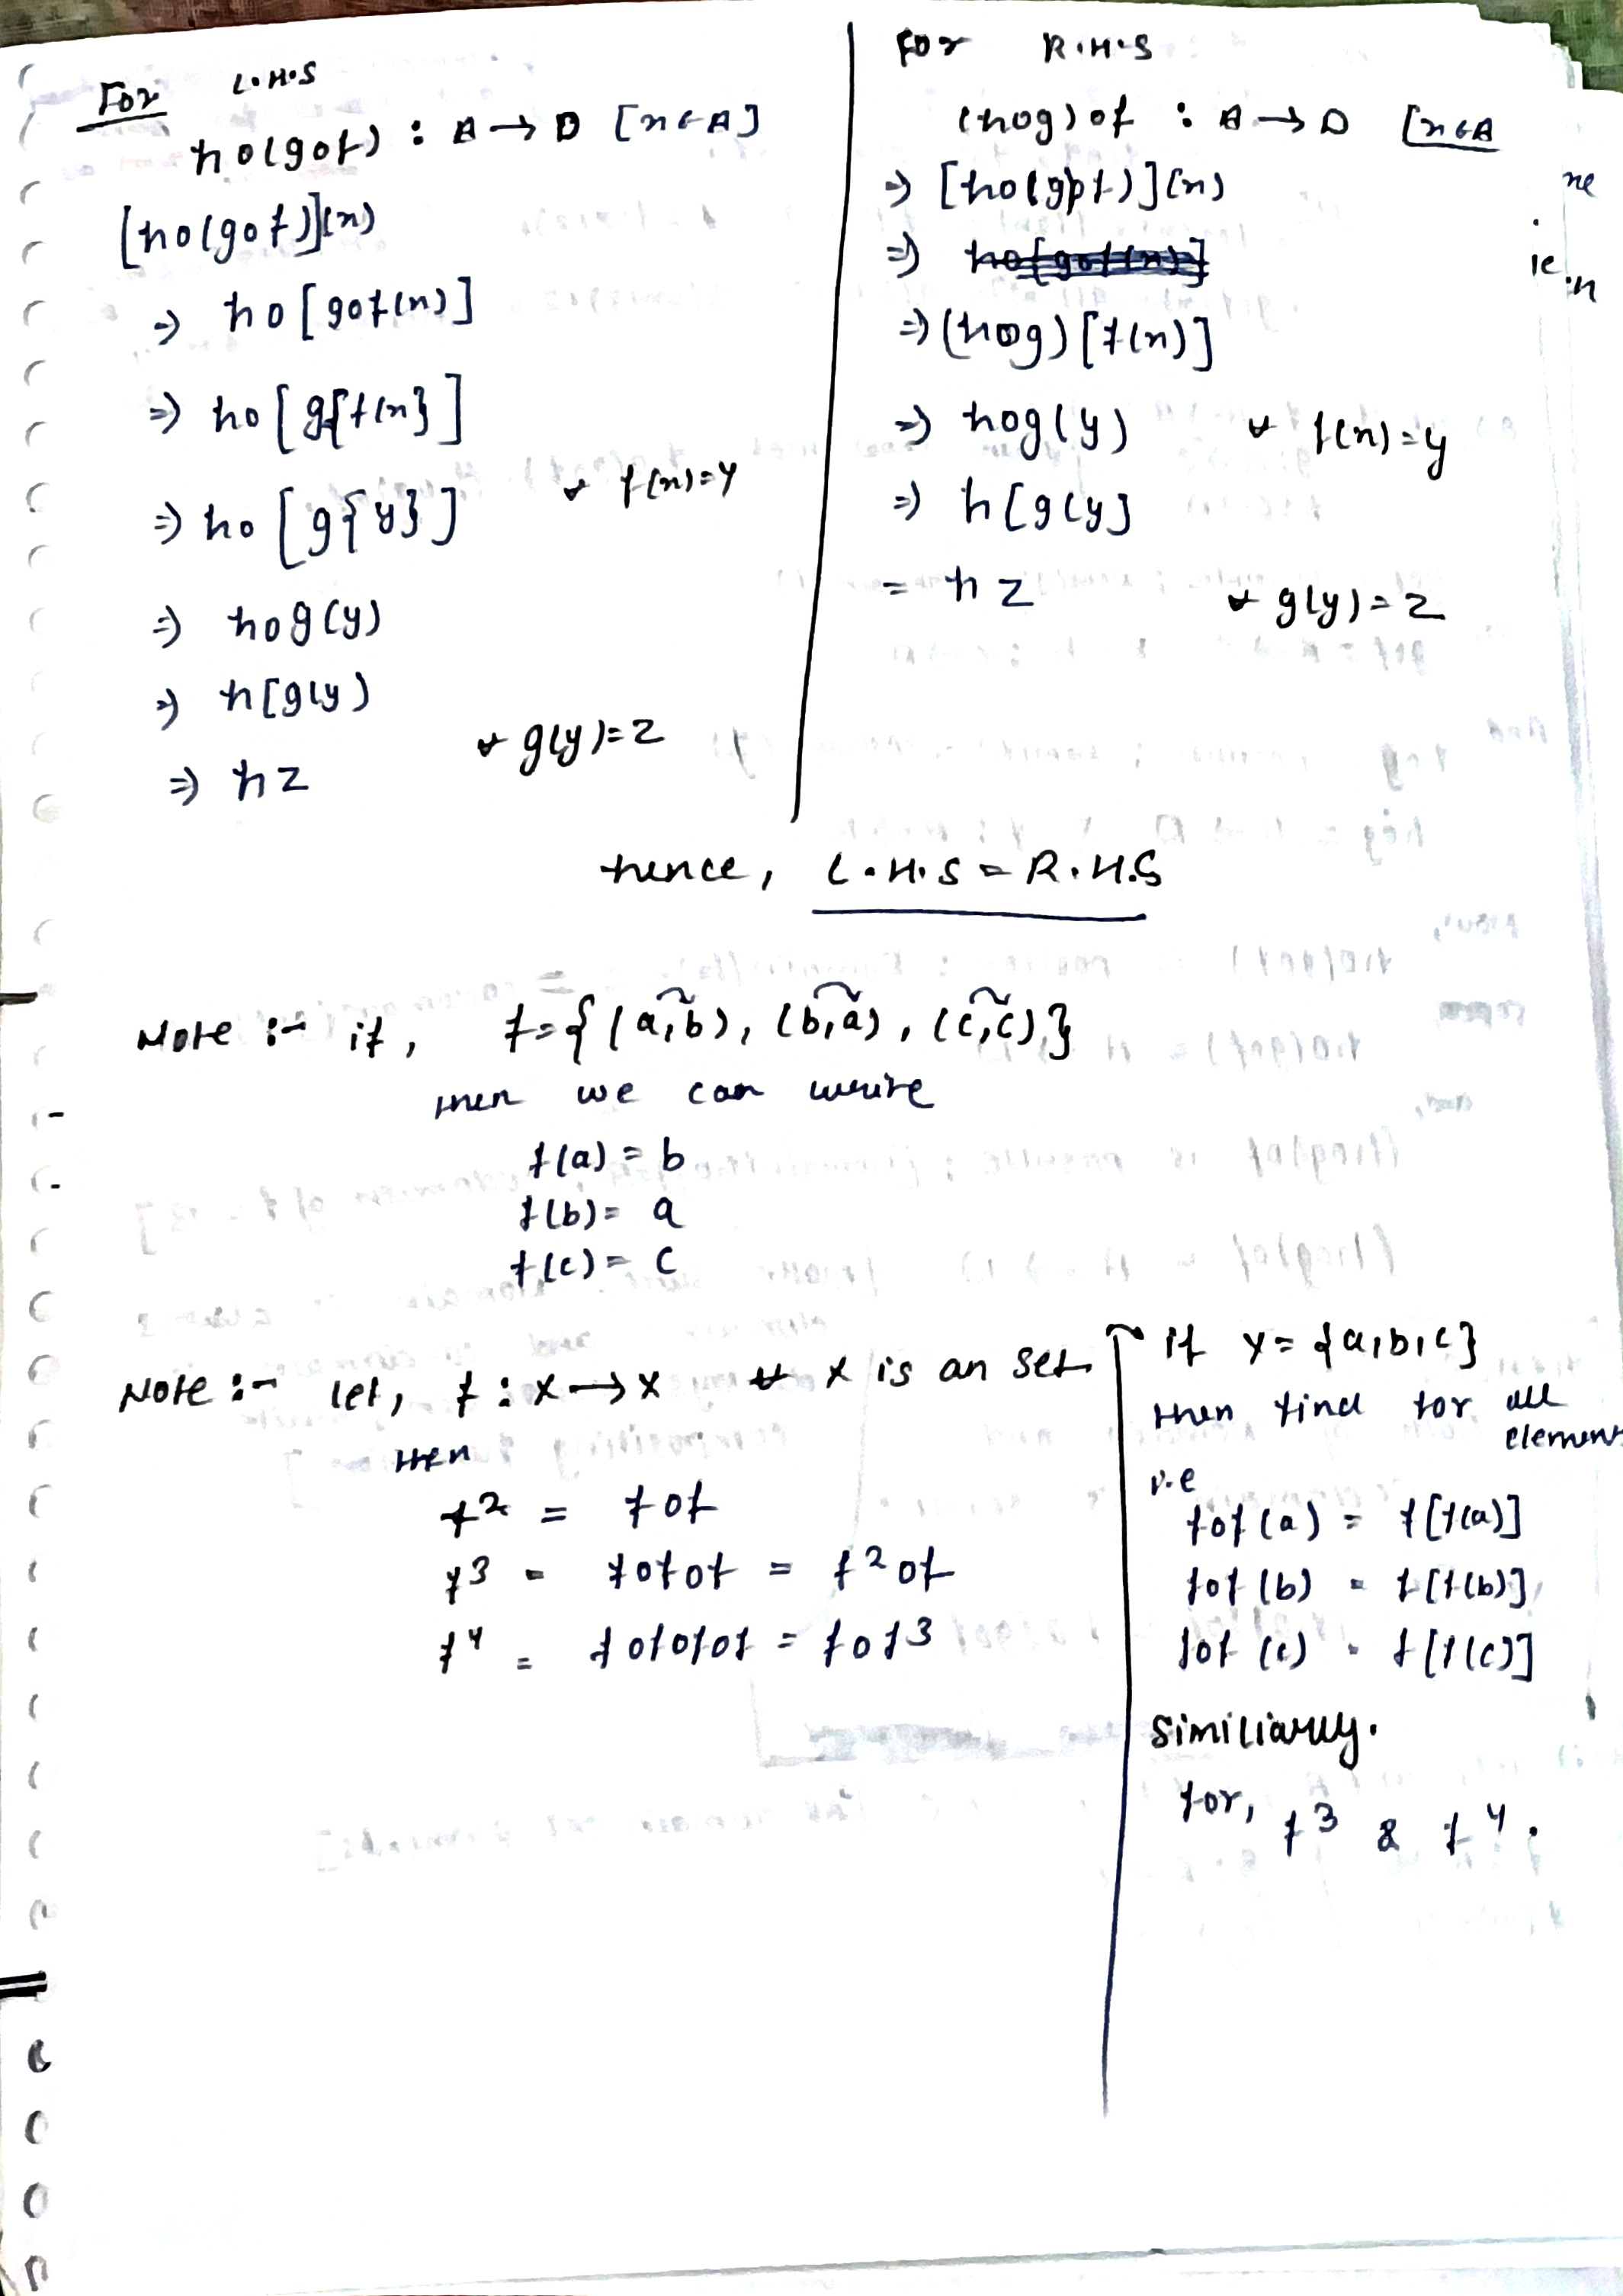 For L.H.S
ho(gof) : A → D [x ∈ A]
[ho(gof)](x)
⇒ ho[gof(x)]
⇒ ho[g{f(x}]
⇒ ho[g{y}] ∀ f(x)=y
⇒ hog(y)
⇒ h[g(y)
⇒ hz ∀ g(y)=z
For R.H.S
(hog)of : A → D [x ∈ A
⇒ [ho(gof)](x)
⇒ ho[gof(x)]
⇒ (hog)[f(x)]
⇒ hog(y) ∀ f(x)=y
⇒ h[g(y]
= hz ∀ g(y)=z
hence, L.H.S = R.H.S
Note :- if, f={(a,b), (b,a), (c,c)}
then we can write
f(a) = b
f(b) = a
f(c) = c
Note :- let, f : X → X ∀ X is an set
then
f² = fof
f³ = fofof = f²of
f⁴ = fofofof = fof³
if y = {a,b,c}
then find for all
element
i.e
fof(a) = f[f(a)]
fof(b) = f[f(b)]
fof(c) = f[f(c)]
similiarly.
for, f³ & f⁴.